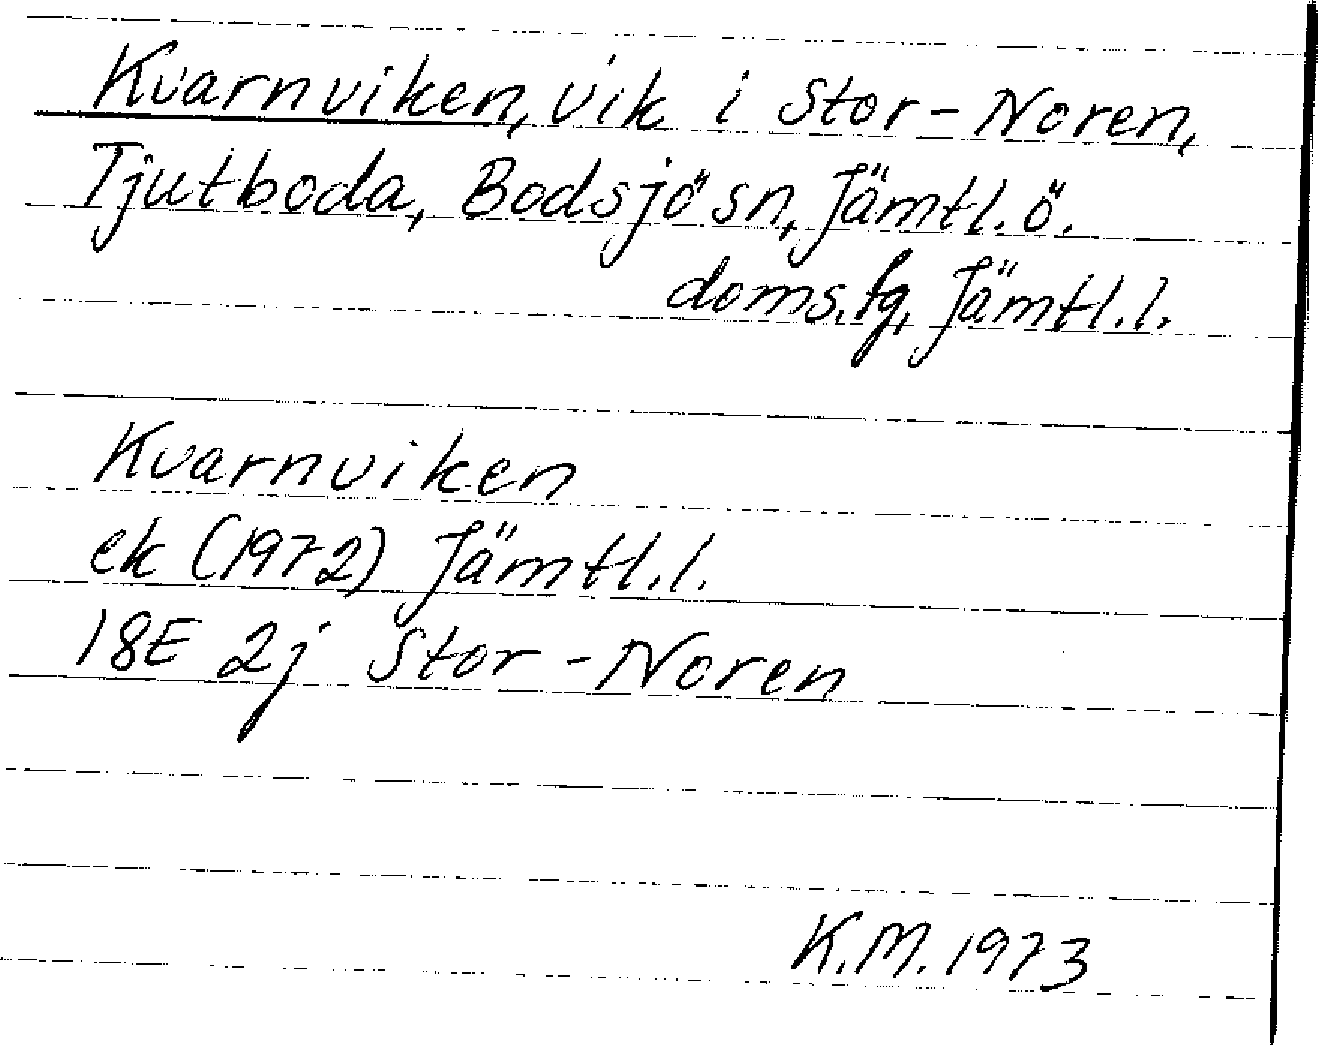 Kvarnviken, vik i Stor-Noren,
Tjutboda, Bodsjö sn, Jämtl. ö.
doms.fg, Jämtl.l.
Kvarnviken
ek (1972) Jämtl.l.
18E 2j Stor-Noren
K.M. 1973